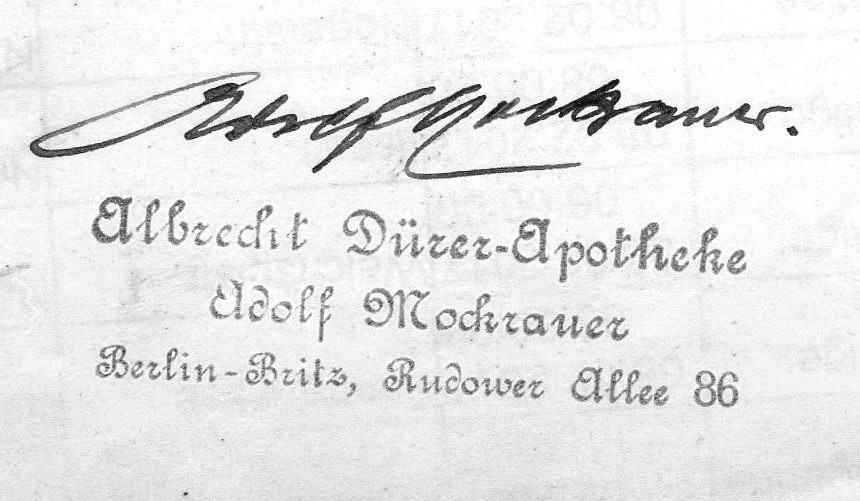 Adolf Mockrauer.
Albrecht Dürer-Apotheke
Adolf Mockrauer
Berlin-Britz, Rudower Allee 86